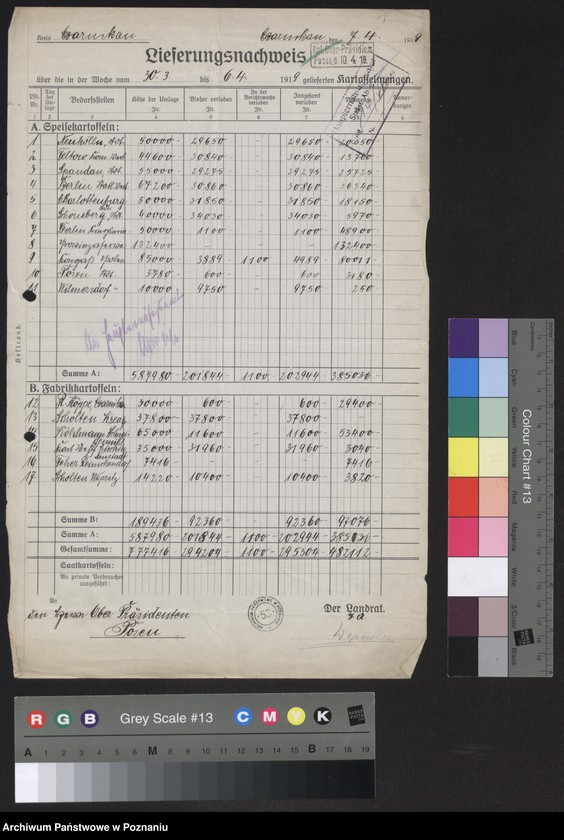 Kreis Czarnikau Czarnikau, den 7. 4. 1919
Lieferungsnachweis
Ober-Präsidium
Posen 10. 4. 19.
über die in der Woche vom 30. 3. bis 6. 4. 1919 gelieferten Kartoffelmengen.
Lfd. Nr. Tag der Umlage Bedarfsstellen Höhe der Umlage Ztr. Bisher verladen Ztr. In der Berichtswoche verladen Ztr. Insgesamt verladen Ztr.
1 2 3 4 5 6 7 8 9
A. Speisekartoffeln:
1 Neukölln, 50000 - 29650 - - 29650 - 20350
2 Teltow 44600 - 30840 - - 30840 - 13700
3 Spandau, 55000 - 29275 - - 29275 - 25725
4 Berlin 67200 - 30860 - - 30860 - 36340
5 Charlottenburg 50000 - 31850 - - 31850 - 18150
6 Schöneberg, 40000 - 34030 - - 34030 - 5970
7 Berlin 50000 - 1100 - - 1100 - 48900
8 132400 - - - - 132400
9 85000 - 3889 - 1100 - 4989 - 80011
10 Posen 3780 - 600 - - 600 - 3180
11 Wilmersdorf 10000 - 9750 - - 9750 - 250
Heftrand.
Summe A: 587980 - 201844 - 1100 - 202944 - 385036
B. Fabrikkartoffeln:
12 30000 - 600 - - 600 - 29400
13 Scholten 37800 - 37800 - - 37800 -
14 65000 - 11600 - - 11600 - 53400
15 35000 - 31960 - - 31960 - 3040
16 7416 - - - - 7416
17 Scholten 14220 - 10400 - - 10400 - 3820
Summe B: 189436 - 92360 - - 92360 - 97076
Summe A: 587980 - 201844 - 1100 - 202944 - 385036
Gesamtsumme: 777416 - 294204 - 1100 - 295304 - 482112
Saatkartoffeln:
An private Verbraucher ausgeführt:
An
den Herrn Ober-Präsidenten
Posen
Der Landrat.
Colour Chart #13
Blue
Cyan
Green
Yellow
Red
Magenta
White
3/Color
Black
R G B Grey Scale #13 C M Y K
A 1 2 3 4 5 6 M 8 9 10 11 12 13 14 15 B 17 18 19
Archiwum Państwowe w Poznaniu